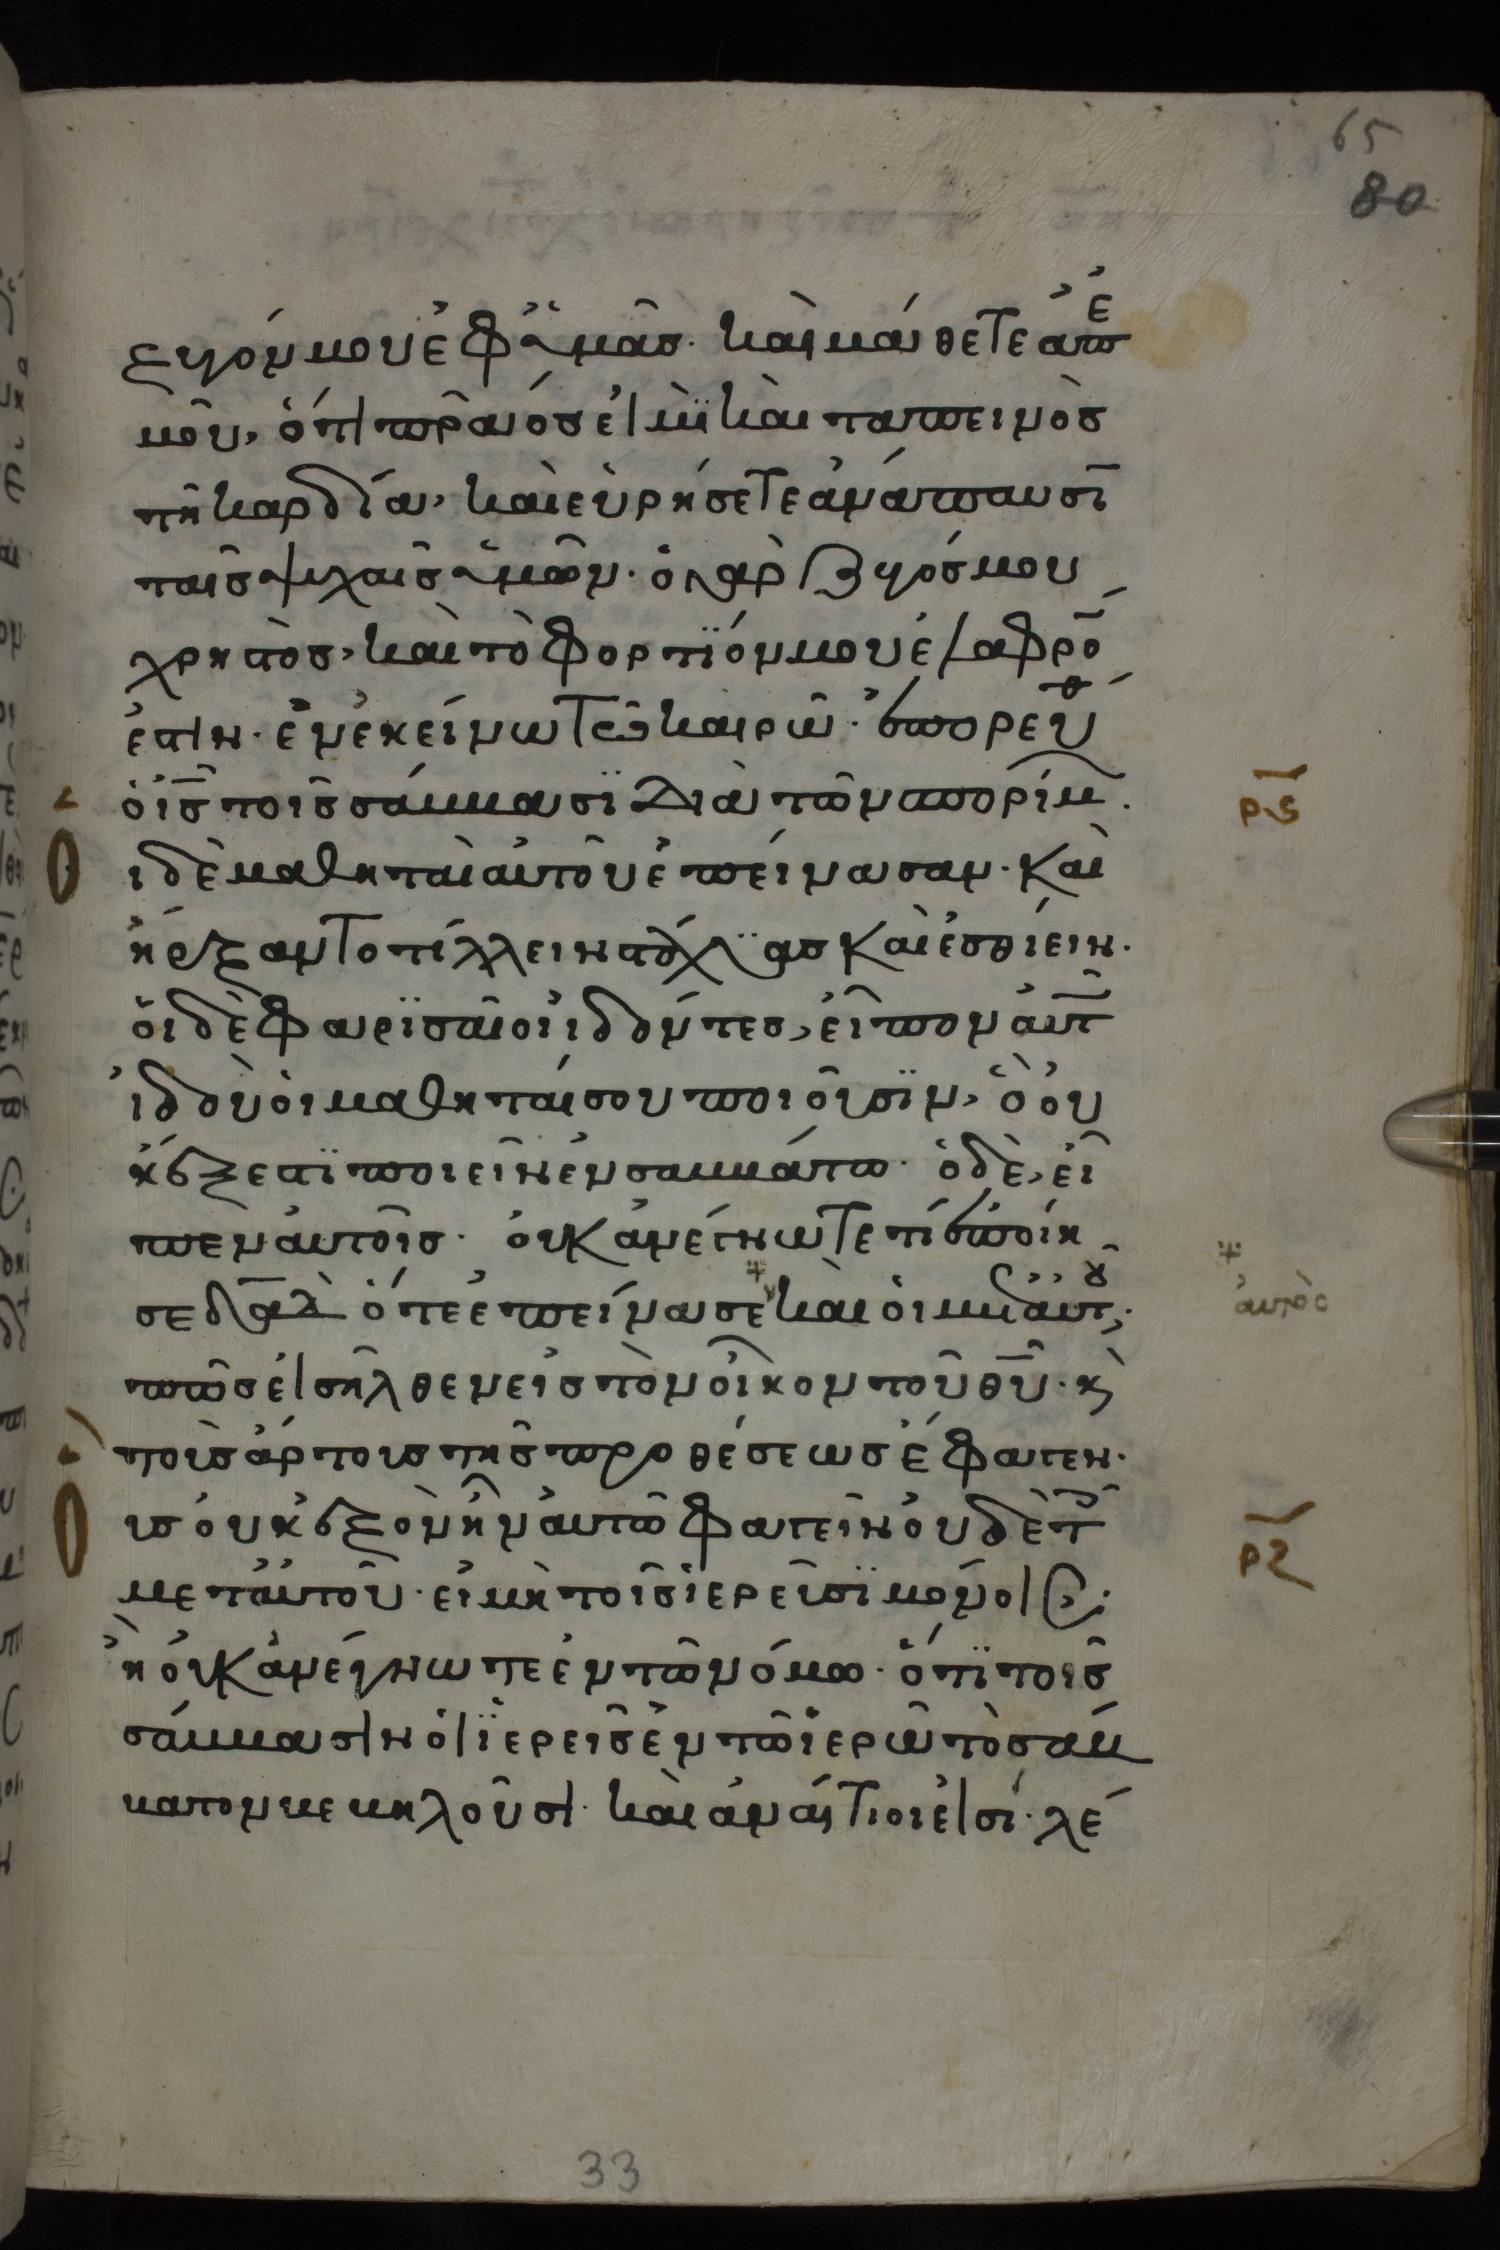 65
80
ζυγόν μου ἐφ ὑμᾶς· καὶ μάθετε ἀπ ἐ
μοῦ, ὅτι πρᾶός εἰμϊ καὶ ταπεινὸς
τῆ καρδία, καὶ εὑρήσετε ἀνάπαυσϊ
ταῖς ψυχαῖς ὑμῶν· ὁ γὰρ ζυγός μου
χρηστὸς, καὶ τὸ φορτϊόν μου ἐλαφρό
ἐστιν· ἐν ἐκείνω τῶ καιρῶ· ἐπορεύθ
ὁ ι̅ς̅ τοῖς σάββασϊ διὰ τῶν σπορίμ.
ι δὲ μαθηταὶ αὐτοῦ ἐπείνασαν· καὶ
ἤρξαντο τίλλειν στάχϋας καὶ ἐσθίειν·
ὁι δὲ φαρϊσαῖοι ἰδόντες, εἶπον αὐτ
ἰδοὺ ὁι μαθηταί σου ποιοῦσϊν, ὃ οὐ
κ ἔξεστϊ ποιεῖν ἐν σαββάτω· ὁ δὲ, εἶ
πεν αὐτοῖς· ὀυκ ἀνέγνωτε τί ἐποίη
σε δα̅δ̅ ὅτε ἐπείνασε καὶ ὁι μετ αὐτοῦ;
ἀυτὸς
πῶς εἰσῆλθεν εἰς τὸν οἶκον τοῦ θ̅υ̅· κ
τοὺς ἄρτους τῆς προθέσεως ἔφαγεν·
υς ὀυκ ἐξὸν ἦν ἀυτῶ φαγεῖν ὀυδὲ τ
μετ ἀυτοῦ· εἰ μὴ τοῖς ἱερεῦσϊ μόνοις;
ἢ ὀυκ ἀνέγνωτε ἐν τῶ νόμω· ὅτϊ τοῖς
σάββασιν ὁι ϊερεῖς ἐν τῶ ἱερῶ τὸ σάβ
βατον βεβηλοῦσι· καὶ ἀναίτιοι εἰσί· λέ
ρ̅ς̅
ρ̅ζ̅
33